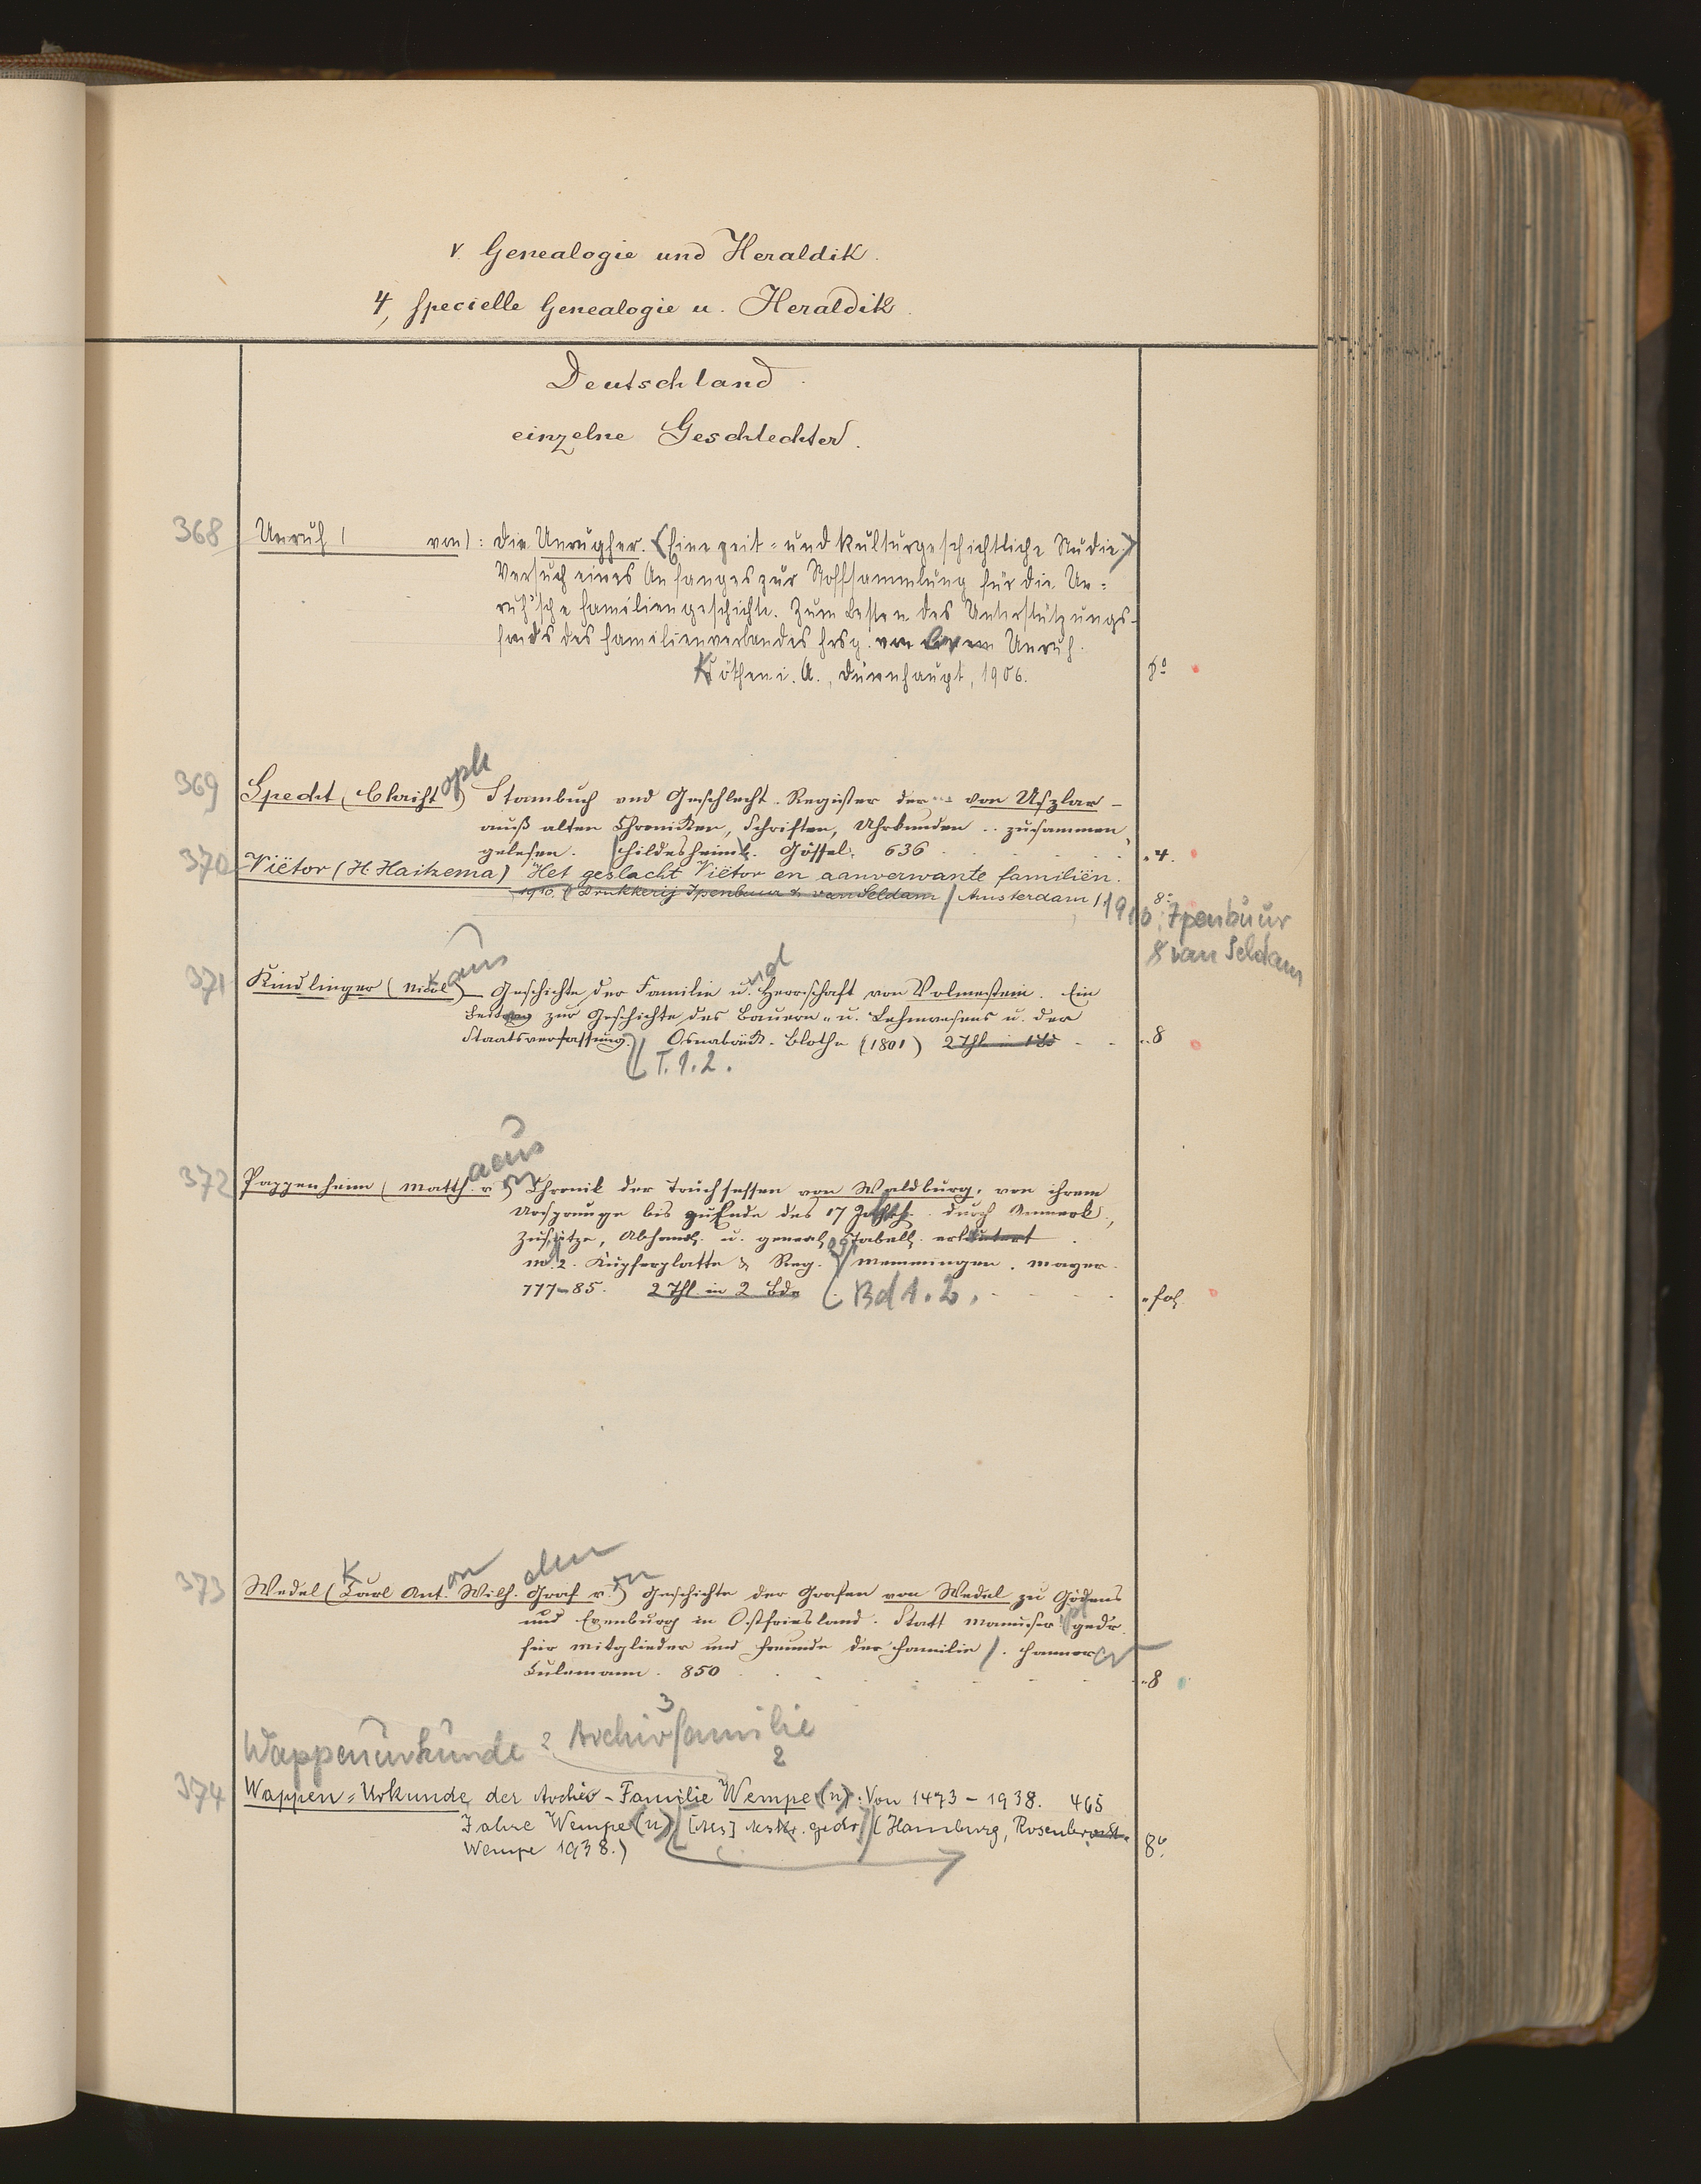 V. Genealogie und Heraldik.
4, specielle Genealogie u. Heraldik.
Deutschland.
einzelne Geschlechter.
368 Unruh ( von): Die Unrugher. (Eine zeit= und kulturgeschichtliche Studie.)
Versuch eines Anfanges zur Stoffsammlung für die Un=
ruh'sche Familiengeschichte. Zum Besten des Unterstützungs-
fonds des Familienverbandes hrsg. von Unruh.
Köthen i. A., Dünnhaupt, 1906. 8º
369 Specht (Christoph) Stambuch und Geschlecht-Register der von Uszlar -
auß alten Chronicken, Schriften, Uhrkunden .. zusammen
gelesen. Hildesheim. Gössel. 636 4.
370 Viëtor (H. Haitzema) Het geslacht Viëtor en aanverwante familiën.
1910. (Drukkerij Ipenbuur & van Seldam / Amsterdam / 1910: Ipenbuur 8º
& van Seldam
371 Kindlinger (Nicolaus) Geschichte der Familie und Herrschaft von Volmestein. Ein
Beitrag zur Geschichte des Bauern- u. Lehnwesens u. der
Staatsverfassung. Osnabrück. Blothe (1801) 2 Thl. in 1 Bd 8
T. 1.2.
372 Pappenheim (Matthaeus v.) Chronik der Truchsessen von Waldburg, von ihrem
Ursprunge bis zu Ende des 17 Jahrh. durch Anmerk.,
Zusätze, Abhandl. u. geneal. Tabell. erläutert.
m. 2. Kupferplatte & Reg. Memmingen. Mayer.
777-85. 2 Thl. in 2 Bde (Bd 1.2. fol.
373 Wedel (Karl Anton Wilh. Graf von) Geschichte der Grafen von Wedel zu Gödens
und Evenburg in Ostfriesland. Statt Manuscript gedr.
für Mitglieder und Freunde der Familie. Hannover
Culemann. 850 8
Wappenurkunde 2 Archivfamilie
3
2
374 Wappen=Urkunde der Archiv-Familie Wempe(n). Von 1473-1938. 465
Jahre Wempe(n). [Als] Mskr. gedr. (Hamburg, Rosenbrock-
Wempe 1938.) 8º